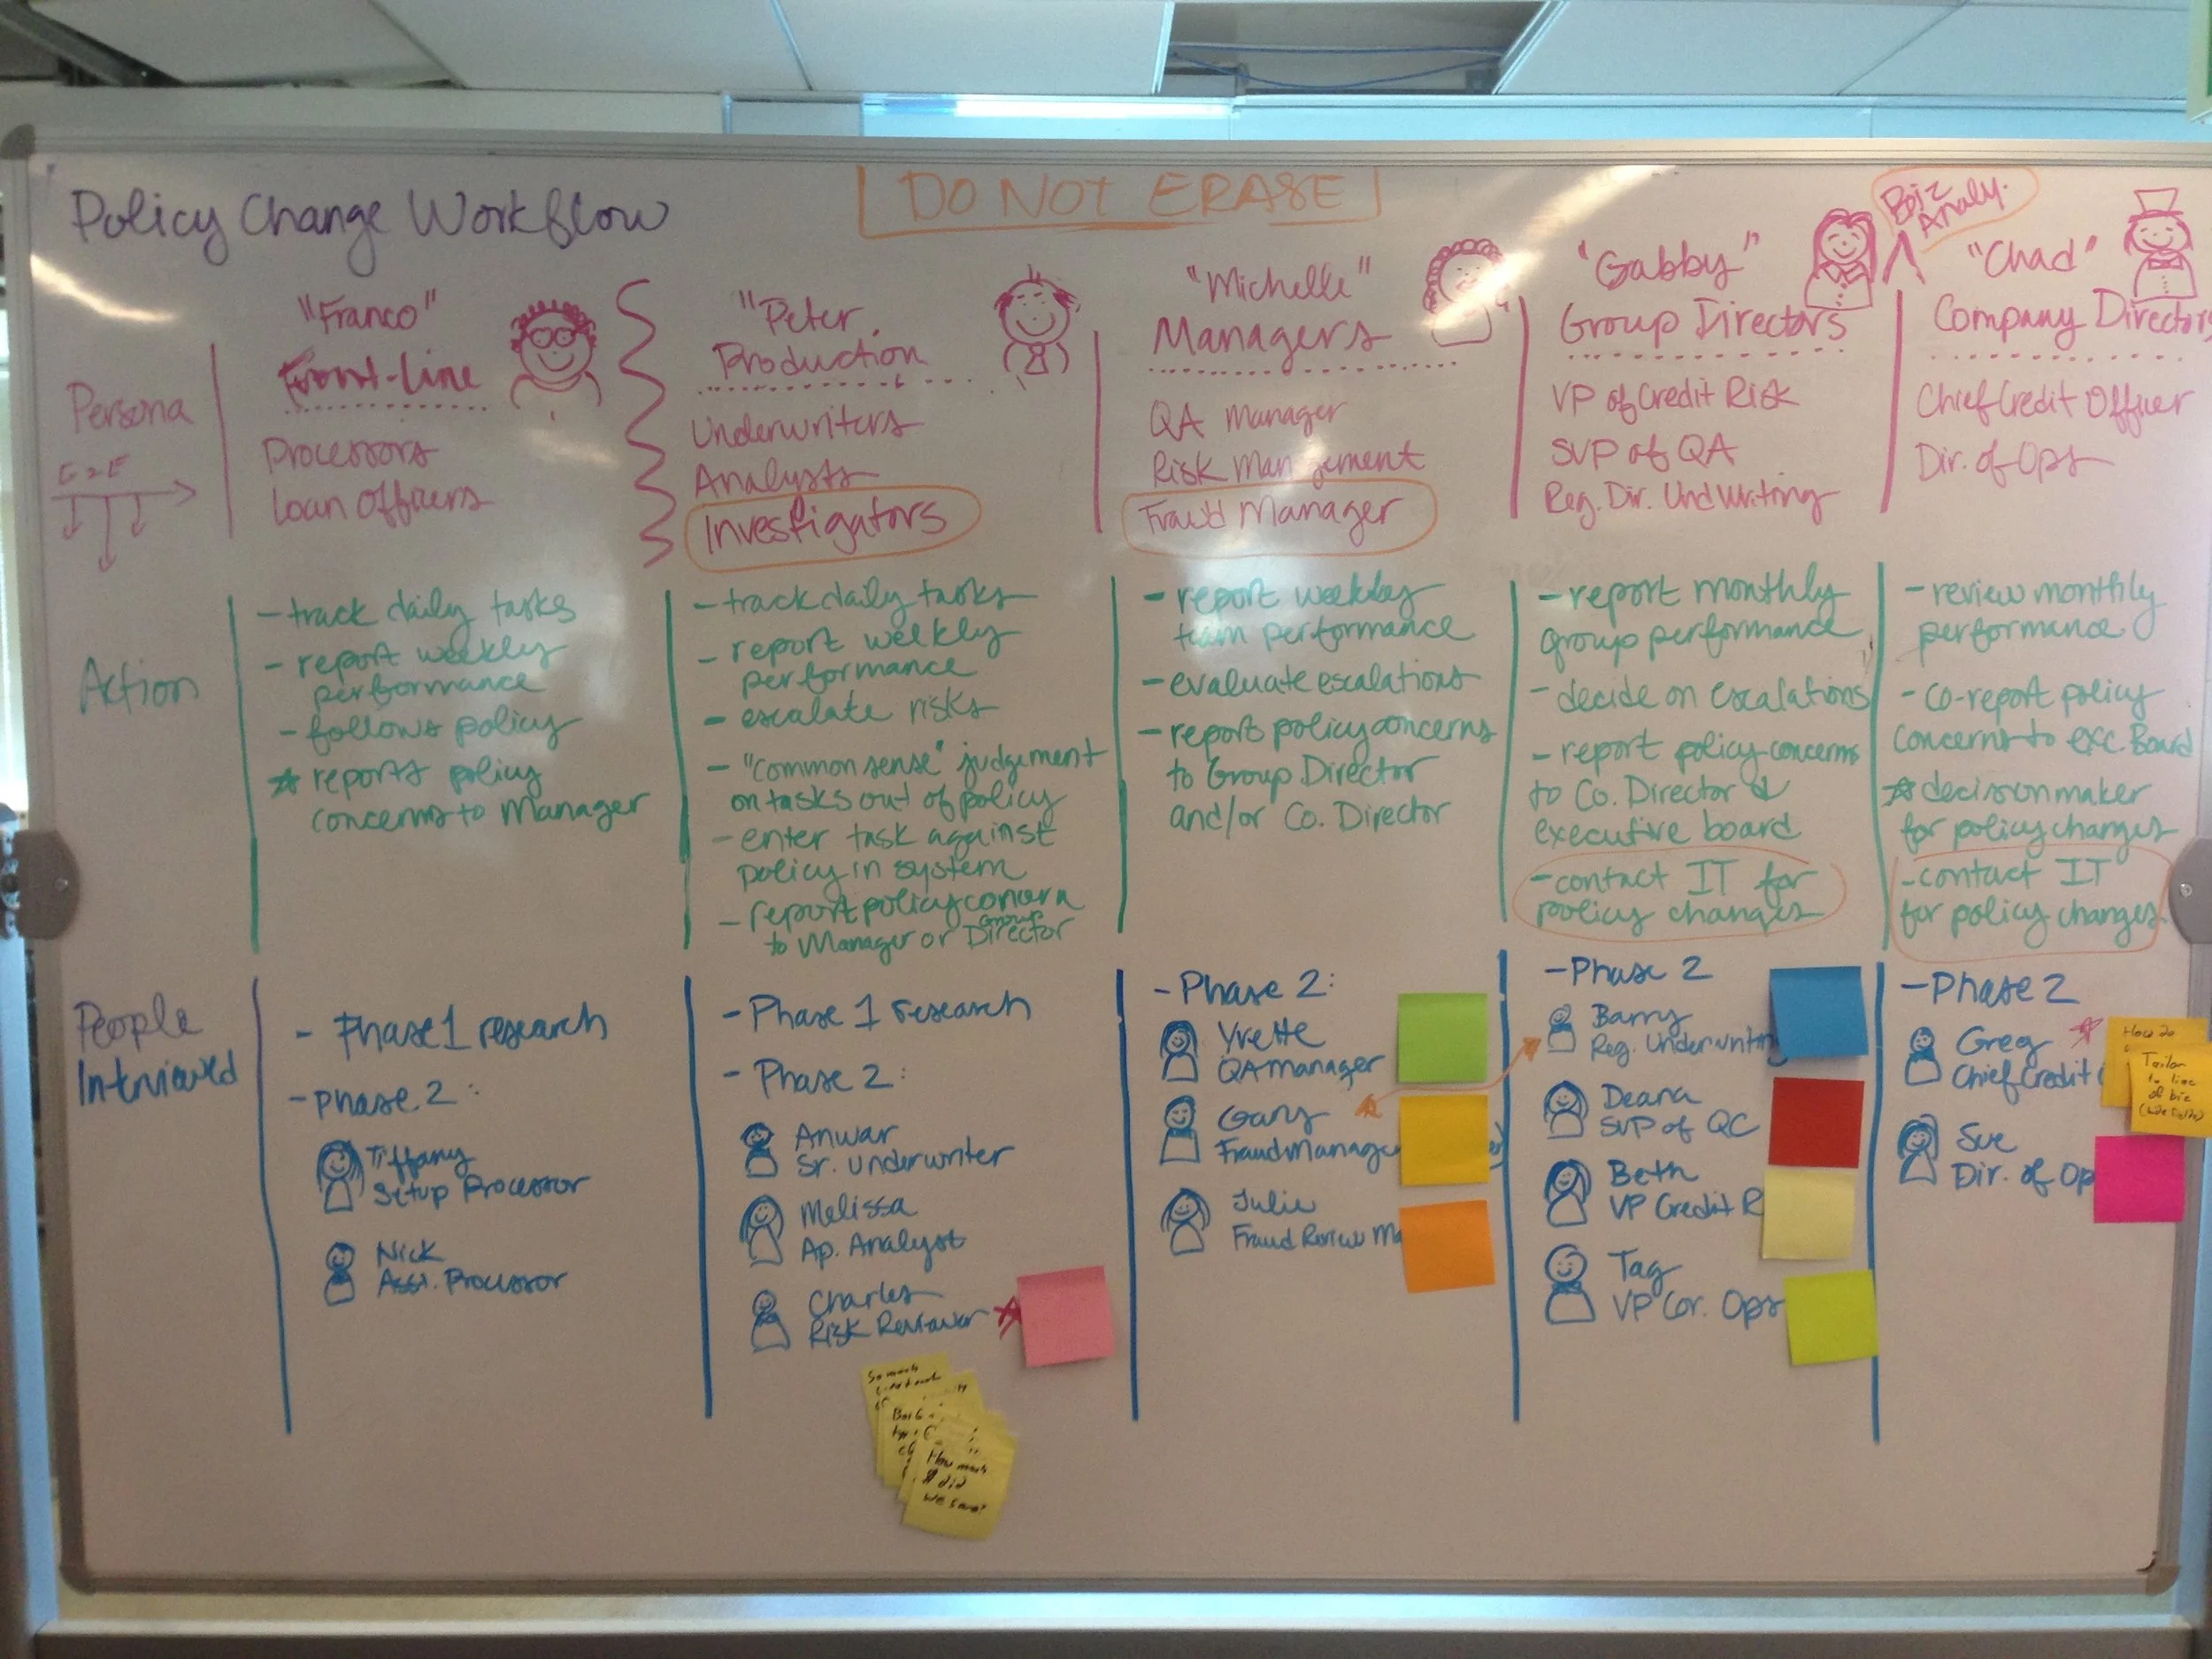 Policy Change Workflow
DO NOT ERASE
Biz
Analy.
Persona
E2E
"Franco"
Front-line
Processors
Loan Officers
"Peter,
Production
Underwriters
Analysts
Investigators
"Michelle"
Managers
QA Manager
Risk Management
Fraud Manager
"Gabby"
Group Directors
VP of Credit Risk
SVP of QA
Reg. Dir. UndWriting
"Chad"
Company Directors
Chief Credit Officer
Dir. of Ops
Action
- track daily tasks
- report weekly
performance
- follows policy
☆ reports policy
concerns to Manager
- track daily tasks
- report weekly
performance
- escalate risks
- "common sense" judgement
on tasks out of policy
- enter task against
policy in system
- report policy concern
to Manager or Group Director
- report weekly
team performance
- evaluate escalations
- report policy concerns
to Group Director
and/or Co. Director
- report monthly
group performance
- decide on escalations
- report policy concerns
to Co. Director &
executive board
- contact IT for
policy changes
- review monthly
performance
- co-report policy
concerns to exc. Board
☆ decision maker
for policy changes
- contact IT
for policy changes
People
Interviewed
- Phase 1 research
- Phase 2:
Tiffany
Setup Processor
Nick
Asst. Processor
- Phase 1 research
- Phase 2:
Anwar
Sr. Underwriter
Melissa
Ap. Analyst
Charles
Risk Reviewer
So much
How much
$ did
we save?
- Phase 2:
Yvette
QA Manager
Gary
Fraud Manage
Julie
Fraud Review Ma
- Phase 2
Barry
Reg. Underwriting
Deana
SVP of QC
Beth
VP Credit R
Tag
VP Cor. Ops
- Phase 2
Greg
Chief Credit
How do
Tailor
to line
of biz
Sue
Dir. of Op